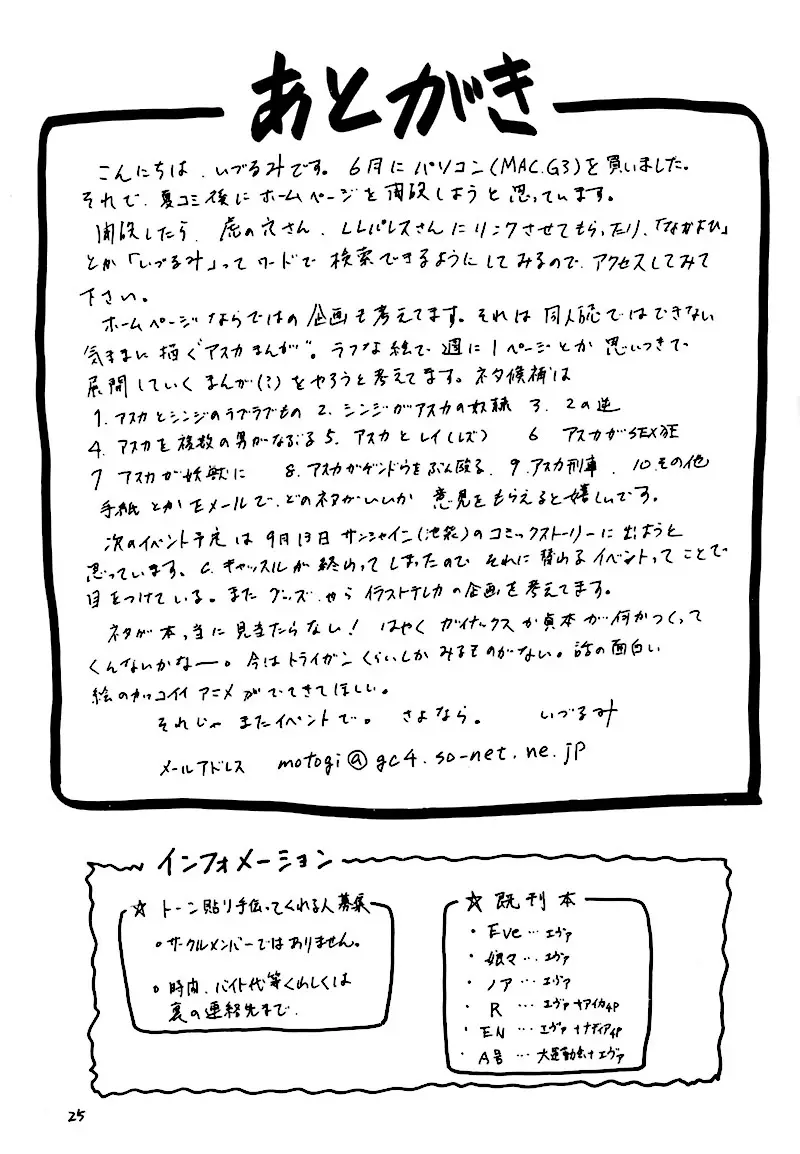 あとがき
こんにちは、いづるみです。6月にパソコン(MAC.G3)を買いました。
それで、夏コミ後にホームページを開設しようと思っています。
開設したら、虎の穴さん、LLパレスさんにリンクさせてもらったり、「なかよひ」
とか「いづるみ」ってワードで検索できるようにしてみるので、アクセスしてみて
下さい。
ホームページならではの企画も考えてます。それは同人誌ではできない
気ままに描く"アスカまんが"。ラフな絵で週に1ページとか思いつきで
展開していくまんが(?)をやろうと考えてます。ネタ候補は
1.アスカとシンジのラブラブもの 2.シンジがアスカの奴隷 3.2の逆
4.アスカを複数の男がなぶる 5.アスカとレイ(レズ) 6 アスカがSEX狂
7 アスカが妖獣に 8.アスカがゲンドウをぶん殴る。 9.アスカ刑事. 10.その他
手紙とかEメールで、どのネタがいいか意見をもらえると嬉しいです。
次のイベント予定は9月13日サンシャイン(池袋)のコミックストーリーに出ようと
思っています。C.キャッスルが終わってしまったので それに替わるイベントってことで
目をつけている。また グッズ やら イラストテレカの企画を考えてます。
ネタが本っ当に見当たらない! はやく ガイナックスか貞本が何かつくって
くんないかなー。今はトライガンくらいしかみるものがない。話の面白い
絵のカッコイイ アニメがでてきてほしい。
それじゃ またイベントで。 さよなら。 いづるみ
メールアドレス motogi@gc4.so-net.ne.jp
インフォメーション
☆ トーン貼り手伝ってくれる人募集
・サークルメンバーではありません。
・時間、バイト代等くわしくは
裏の連絡先まで.
☆ 既刊本
・Eve…エヴァ
・娘々…エヴァ
・ノア…エヴァ
・R …エヴァ+アイカ4P
・EN …エヴァ+ナディア4P
・A号 …大運動会+エヴァ
25